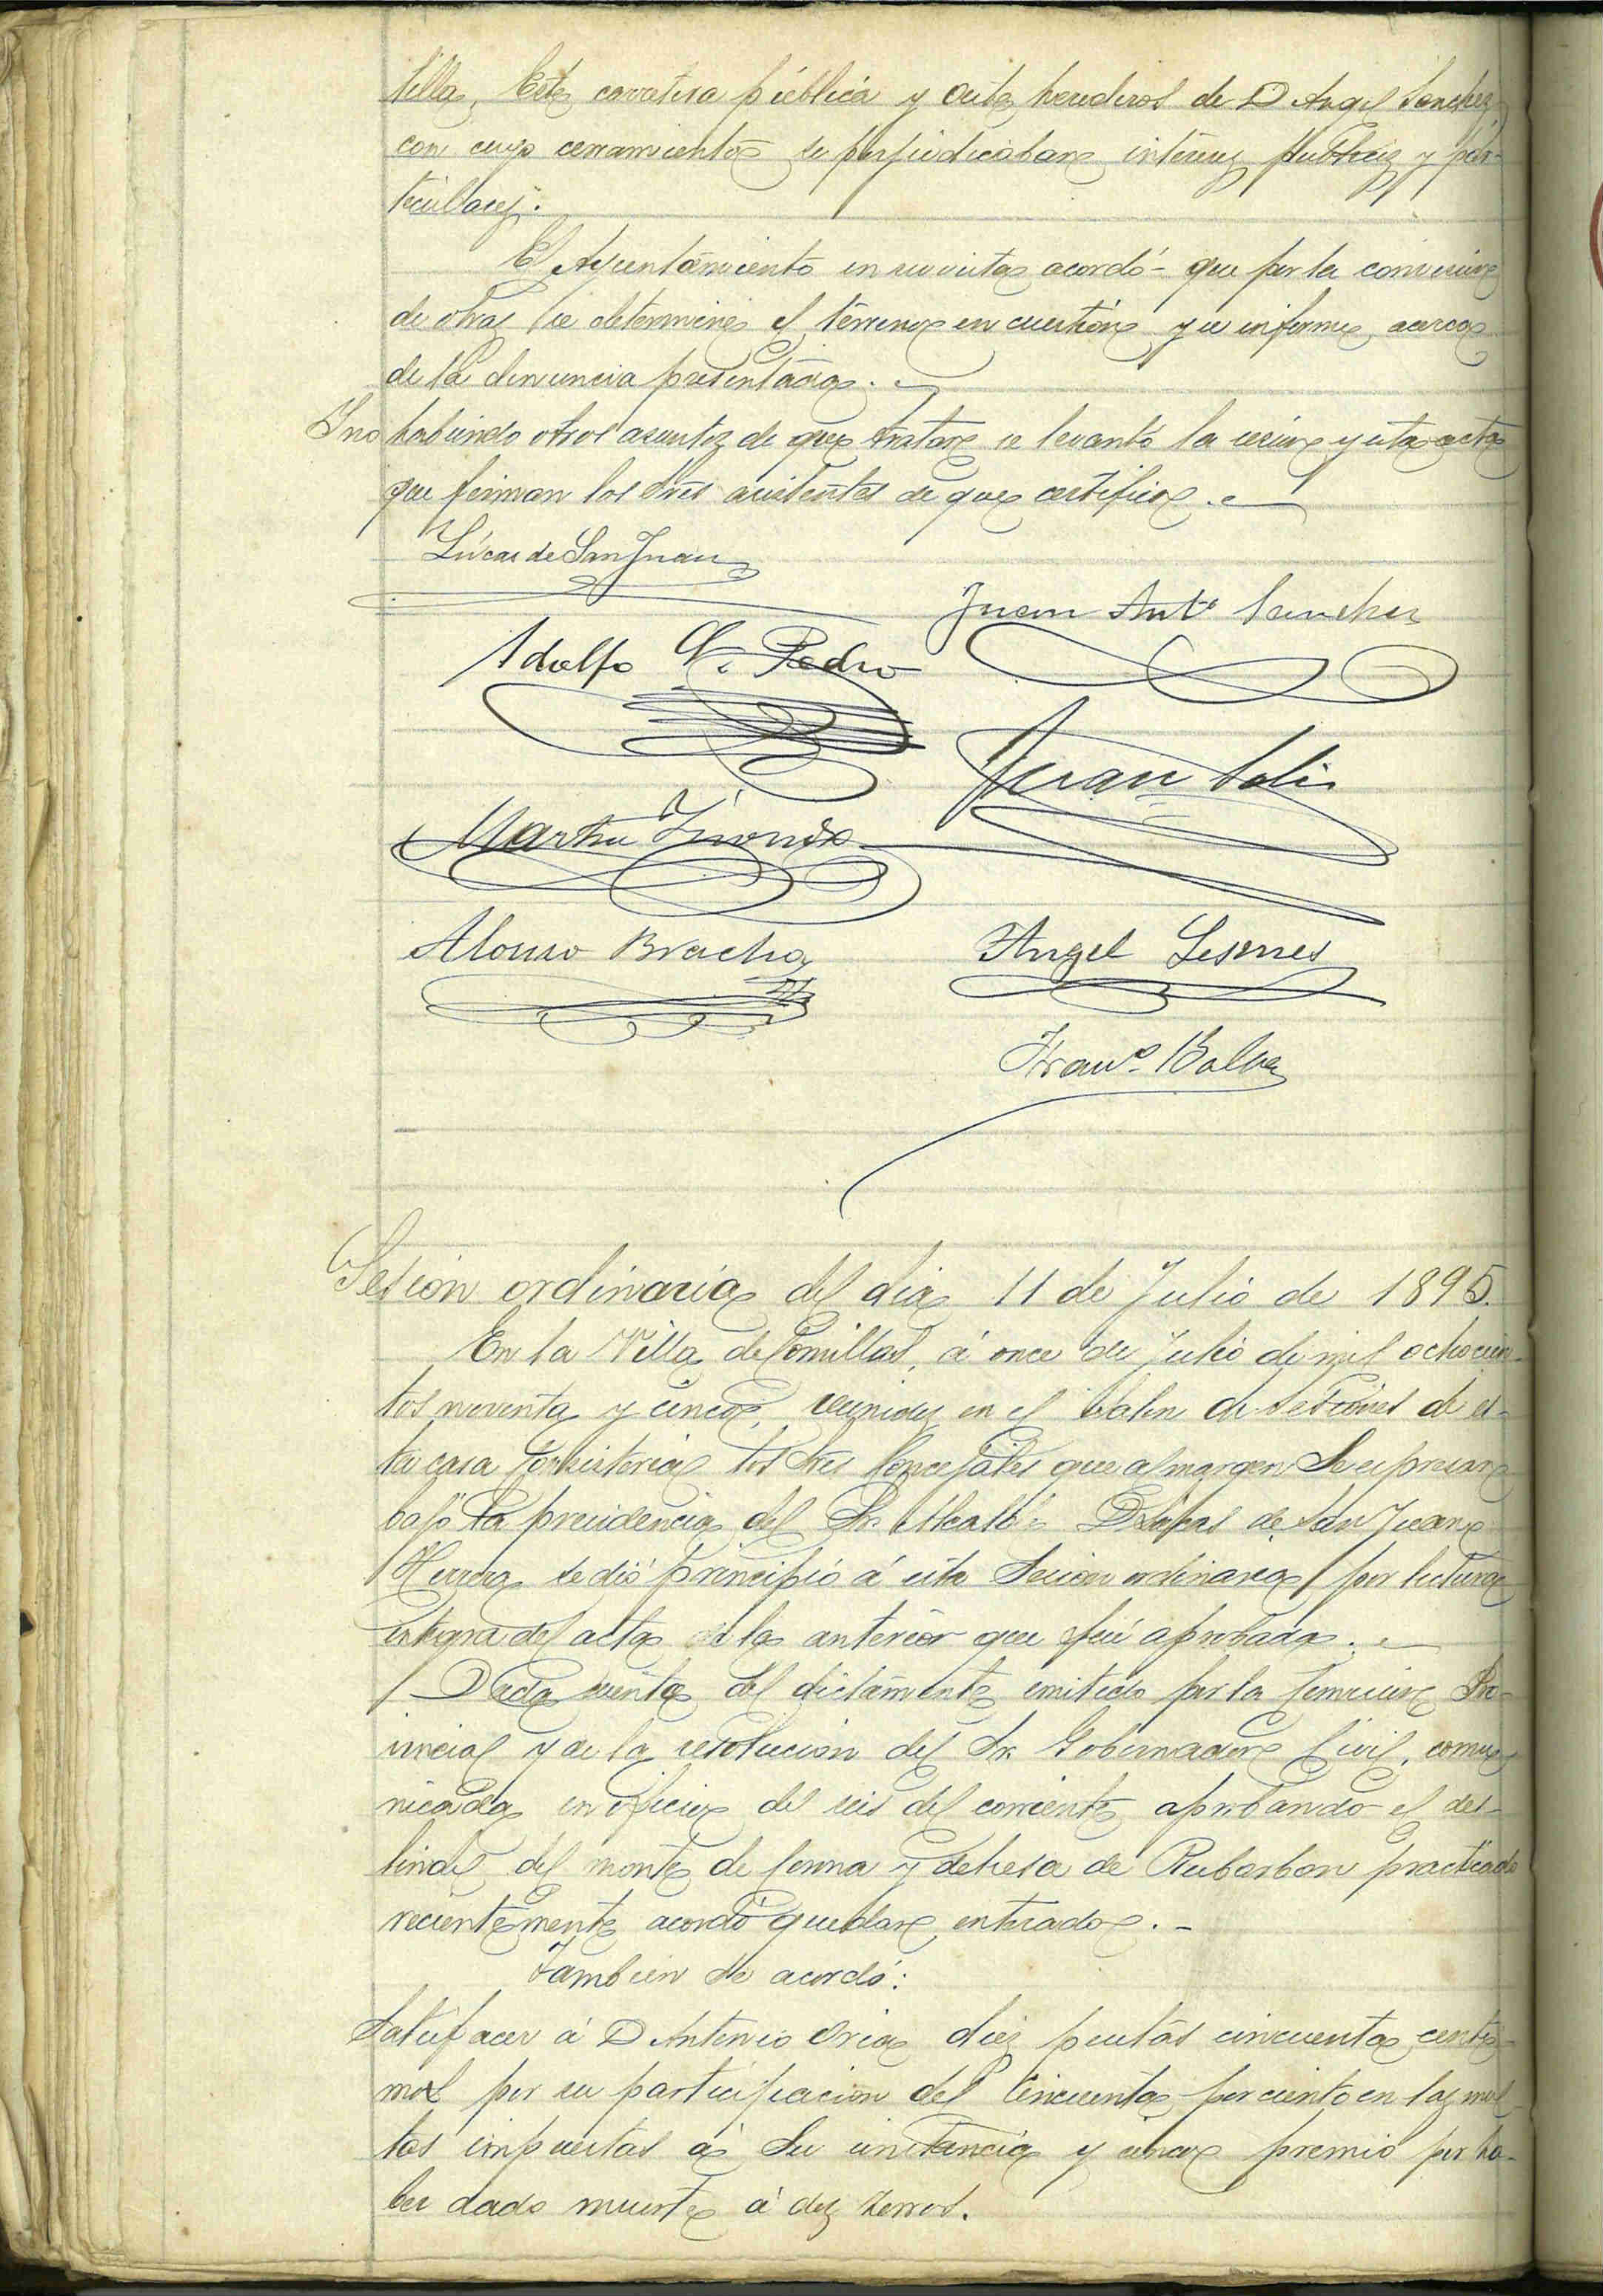 tilla, Este carretera pública y Oeste herederos de D Angel Sanchez,
con cuyo cerramiento se perjudicaban intereses publicos y par-
ticulares.
El Ayuntamiento en su vista acordó que por la comision
de obras se determine el terreno en cuestion y se informe acerca
de la denuncia presentada.
Y no habiendo otros asuntos de que tratar se levantó la sesion y esta acta
que firman los Sres asistentes de que certifico.
Lúcas de San Juan
Juan Ant.º Sanchez
Adolfo G. Pedro
Juan Solis
Martin
Alonso Bracho
Angel Lesmes
Fran.co Balba
Sesion ordinaria del dia 11 de Julio de 1895.
En la Villa de Comillas, á once de Julio de mil ochocien-
tos noventa y cinco, reunidos en el Salon de Sesiones de es-
ta casa Consistorial los Sres Concejales que al margen se expresan
bajo la presidencia del Sr. Alcalde D Lucas de San Juan
Herrera se dió principio á esta Sesion ordinaria por lectura
integra del acta de la anterior que fué aprobada.
Dada cuenta del dictámente emitido por la Comision Pro-
vincial y de la resolucion del Sr. Gobernador Civil, comu-
nicada en oficio del seis del corriente aprobando el des-
linde del monte de Corona y dehesa de Rubarbon practicado
recientemente acordó quedar enterado.
Tambien se acordó:
Satisfacer á D Antonio Oria diez pesetas cincuenta centi-
mos por su participacion del cincuenta por ciento en las mul-
tas impuestas á su instancia y cinco premio por ha-
ber dado muerte á dos zorros.